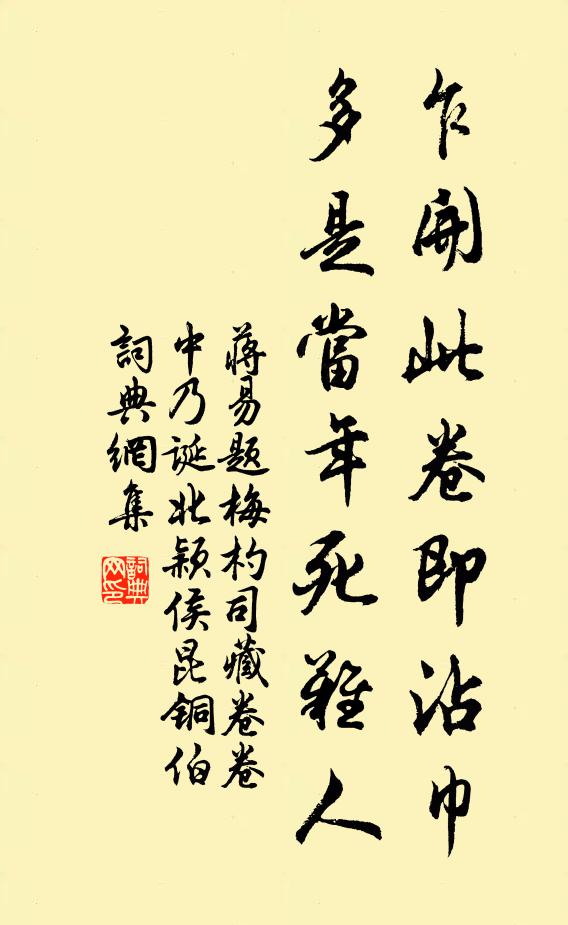 乍開此卷即沾巾
多是當年死難人
蔣易題梅杓司藏卷卷
中乃誕北潁侯昆銅伯
詞典網集
詞典
网印